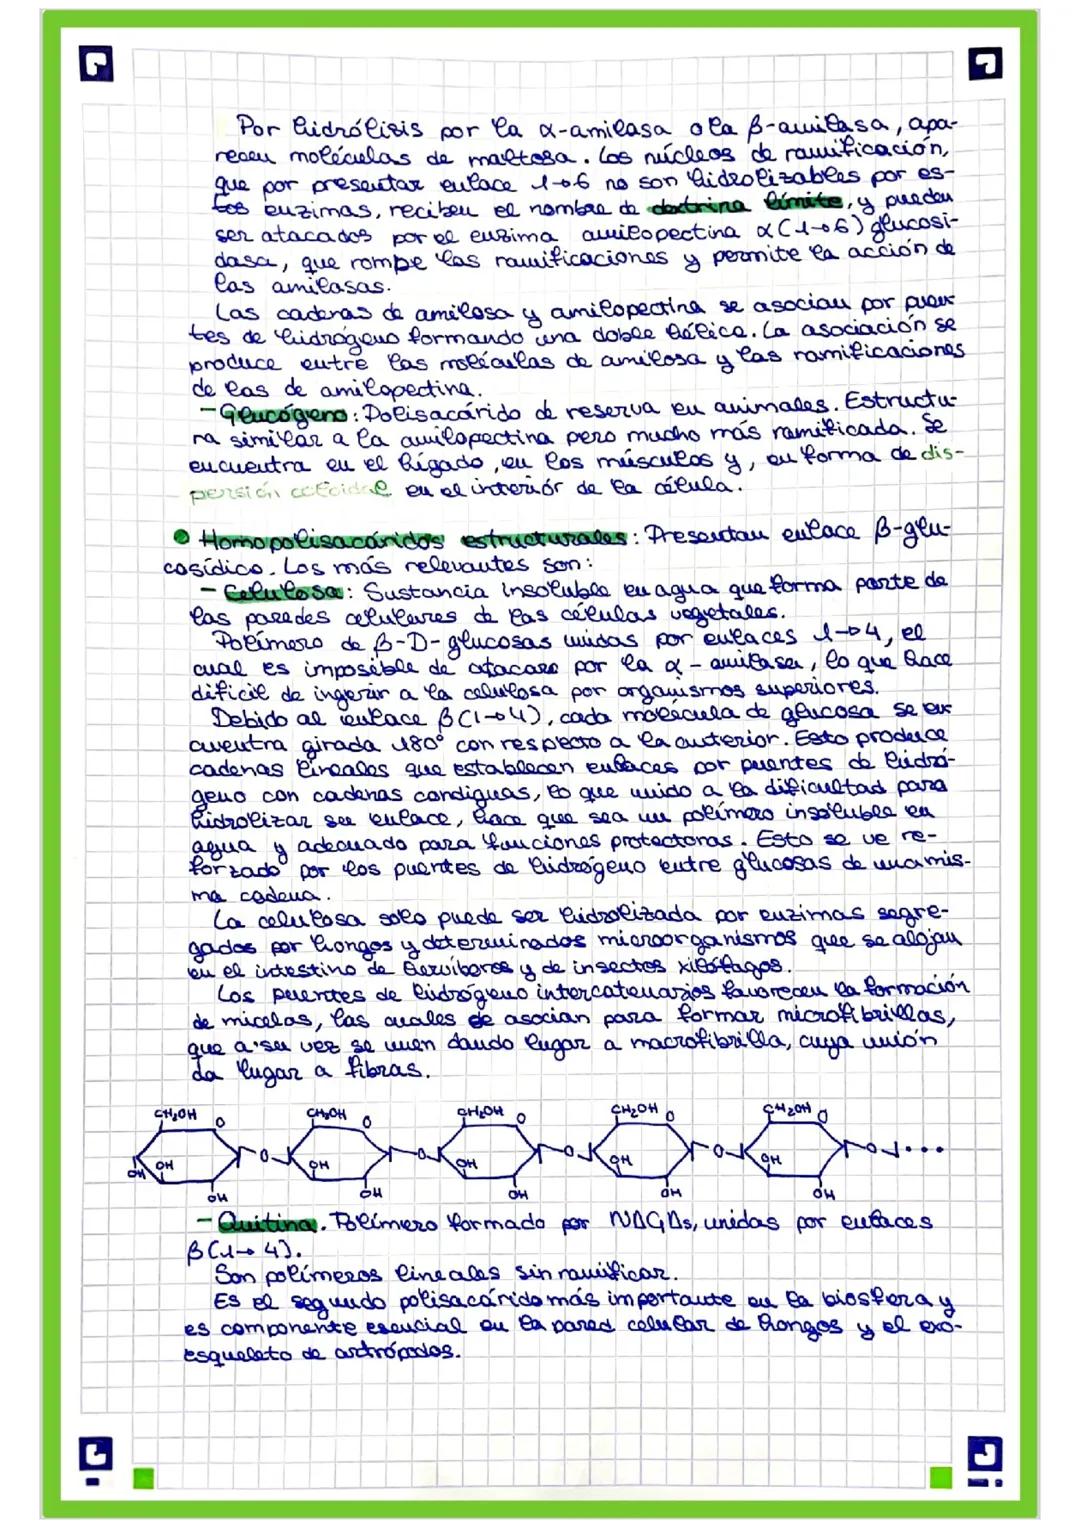 Por hidrólisis por la α-amilasa o la β-amilasa, apa-
recen moléculas de maltosa. Los núcleos de ramificación,
que por presentar enlace 1→6 no son hidrolizables por es-
tos enzimas, reciben el nombre de dextrina límite, y pueden
ser atacados por el enzima amilopectina α(1→6) glucosi-
dasa, que rompe las ramificaciones y permite la acción de
las amilasas.
Las cadenas de amilosa y amilopectina se asocian por puen-
tes de hidrógeno formando una doble hélice. La asociación se
produce entre las moléculas de amilosa y las ramificaciones
de las de amilopectina.
- Glucógeno: Polisacárido de reserva en animales. Estructu-
ra similar a la amilopectina pero mucho más ramificada. Se
encuentra en el hígado, en los músculos y, en forma de dis-
persión coloidal en el interior de la célula.
• Homopolisacáridos estructurales: Presentan enlace β-glu-
cosídico. Los más relevantes son:
- Celulosa: Sustancia insoluble en agua que forma parte de
las paredes celulares de las células vegetales.
Polímero de β-D-glucosas unidas por enlaces 1→4, el
cual es imposible de atacar por la α-amilasa, lo que hace
difícil de ingerir a la celulosa por organismos superiores.
Debido al enlace β(1→4), cada molécula de glucosa se en-
cuentra girada 180° con respecto a la anterior. Esto produce
cadenas lineales que establecen enlaces por puentes de hidró-
geno con cadenas contiguas, lo que unido a la dificultad para
hidrolizar su enlace, hace que sea un polímero insoluble en
agua y adecuado para funciones protectoras. Esto se ve re-
forzado por los puentes de hidrógeno entre glucosas de una mis-
ma cadena.
La celulosa solo puede ser hidrolizada por enzimas segre-
gados por hongos y determinados microorganismos que se alojan
en el intestino de herviboros y de insectos xilófagos.
Los puentes de hidrógeno intercatenarios favorecen la formación
de micelas, las cuales se asocian para formar microfibrillas,
que a su vez se unen dando lugar a macrofibrilla, cuya unión
da lugar a fibras.
CH₂OH O CH₂OH O CH₂OH O CH₂OH O CH₂OH O
OH OH O OH O OH O OH O OH O ...
OH OH OH OH OH
- Quitina. Polímero formado por NAGAs, unidas por enlaces
β(1→4).
Son polímeros lineales sin ramificar.
Es el segundo polisacárido más importante en la biosfera y
es componente esencial en la pared celular de hongos y el exo-
esqueleto de artrópodos.